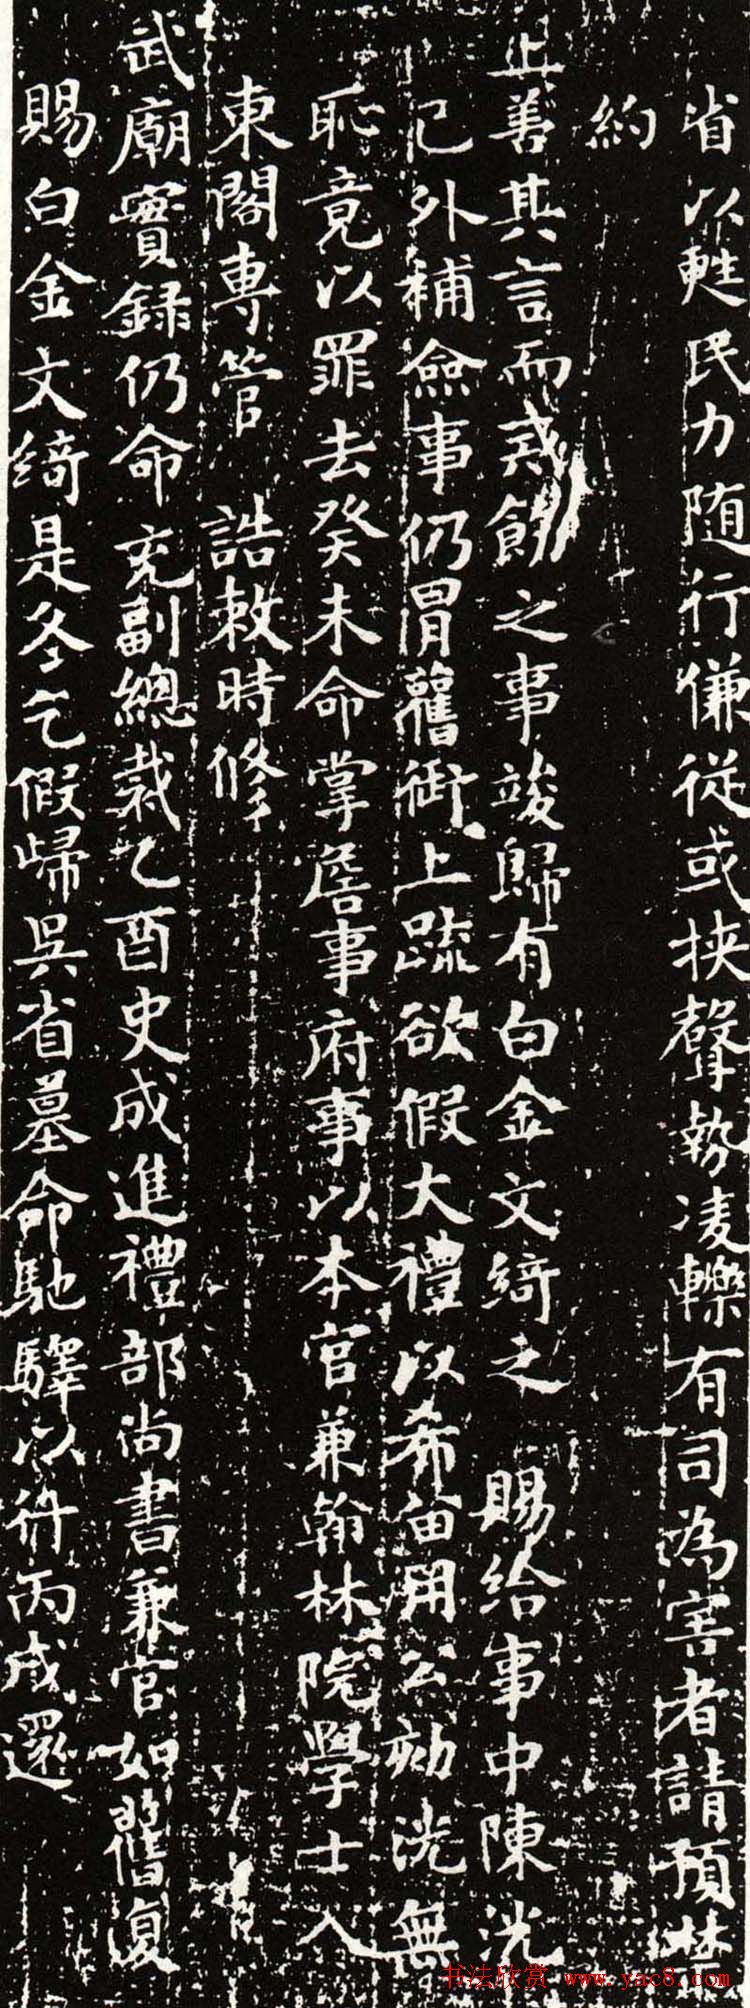 省以甦民力随行傔從或挾聲勢凌轢有司為害者請預禁
約
上善其言而戒飭之事竣歸有白金文綺之 賜給事中陳洸
已外補僉事仍冒舊銜上疏欲假大禮以希留用公劾洸無
恥竟以罪去癸未命掌詹事府事以本官兼翰林院學士入
東閣專管 誥敕時修
武廟實録仍命充副總裁乙酉史成進禮部尚書兼官如舊復
賜白金文綺是冬乞假歸吳省墓命馳驛以行丙戌還
书法欣赏 www.yac8.com